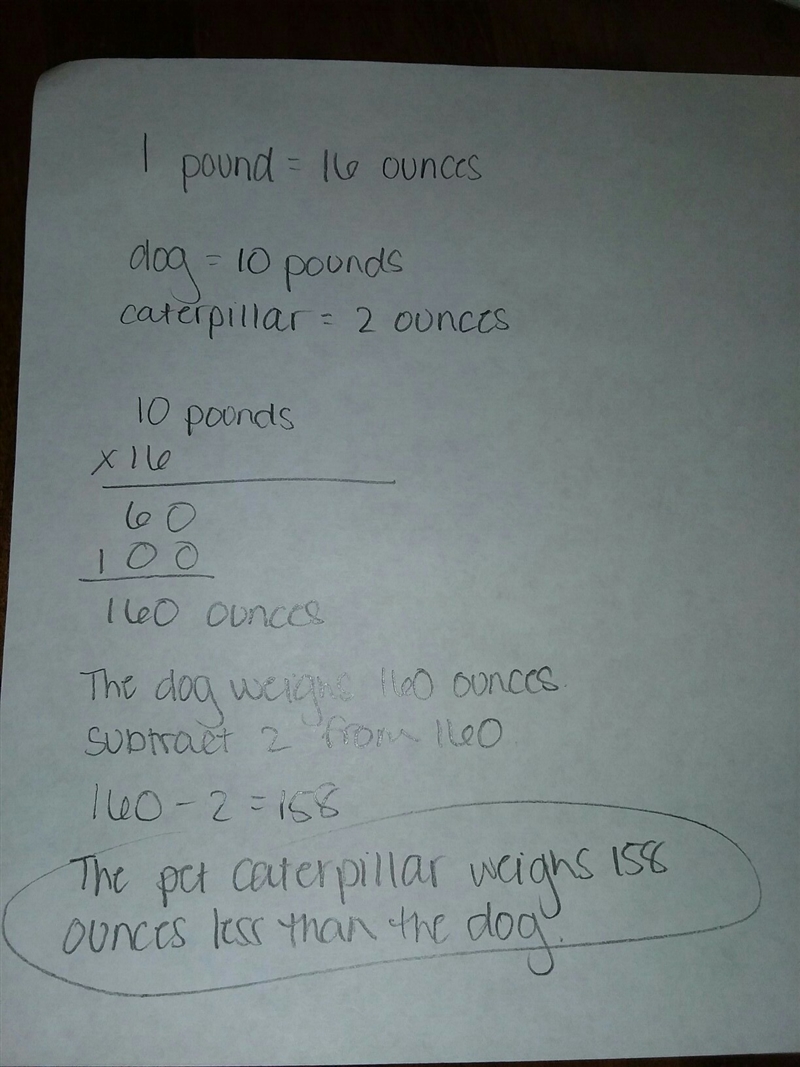 1 pound = 16 ounces
dog = 10 pounds
caterpillar = 2 ounces
10 pounds
x 16
60
100
160 ounces
The dog weighs 160 ounces.
subtract 2 from 160
160 - 2 = 158
The pet caterpillar weighs 158
ounces less than the dog.